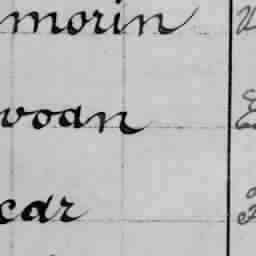 morin
voan
car